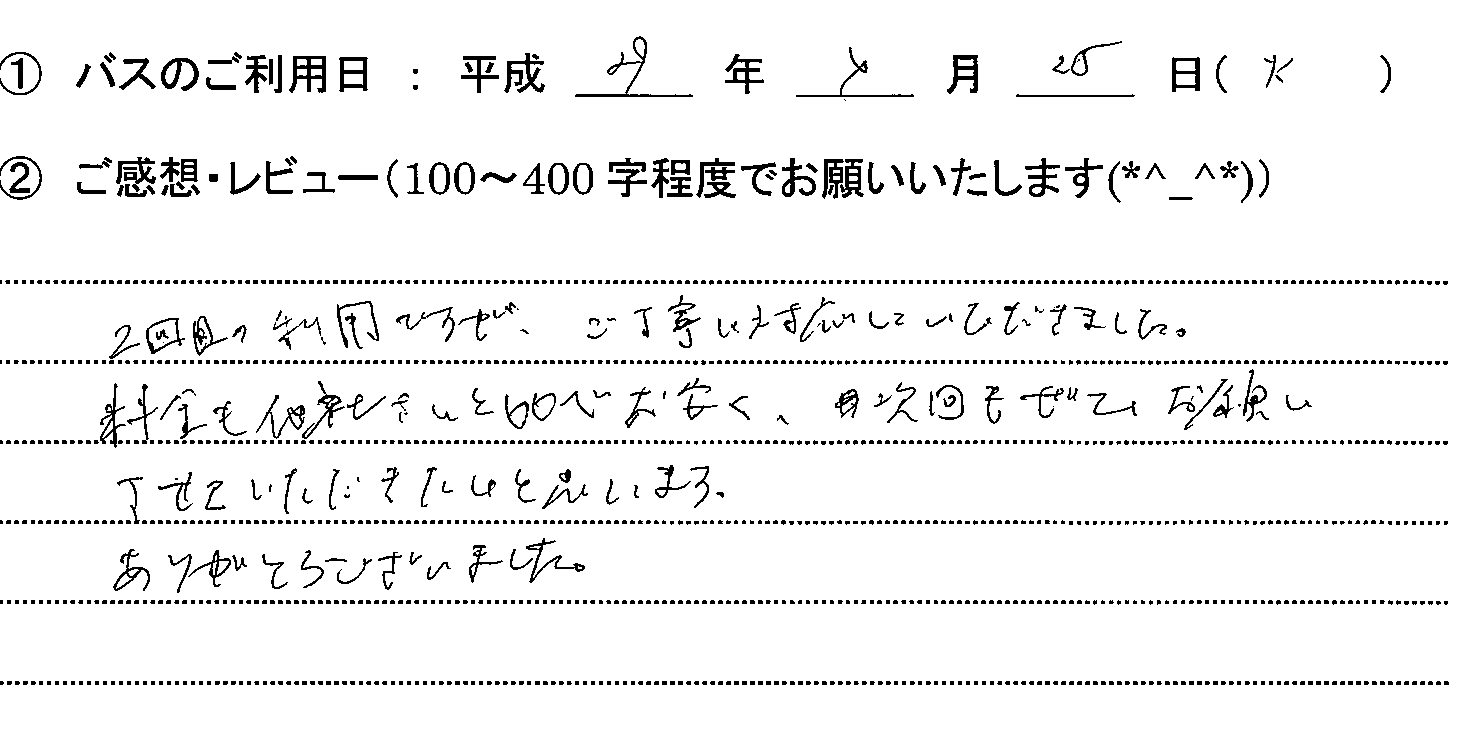 ① バスのご利用日 : 平成 29 年 7 月 25 日( 火 )
② ご感想・レビュー(100～400 字程度でお願いいたします(*^_^*))
2回目の利用ですが、ご丁寧に対応していただきました。
料金も他社さんと比べお安く、次回もぜひお願い
させていただきたいと思います。
ありがとうございました。